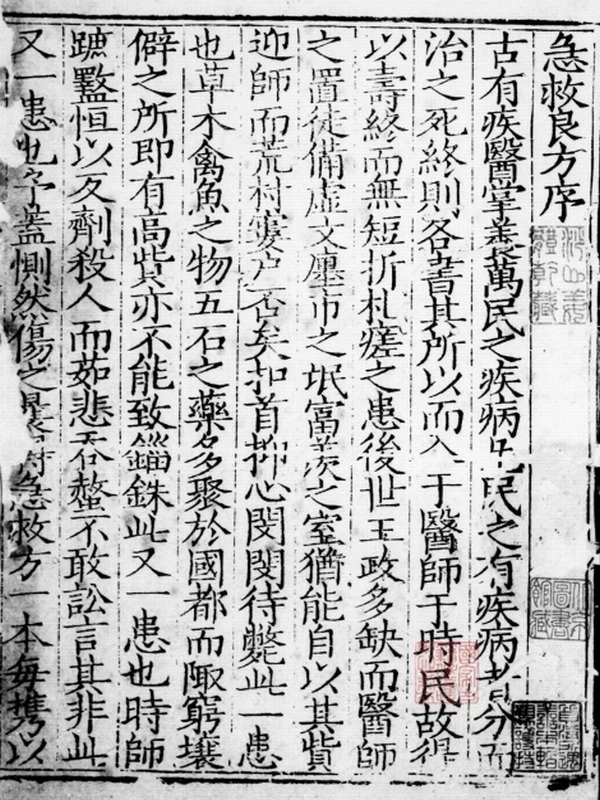 急救良方序
古有疾醫掌養萬民之疾病凡民之有疾病者分而
治之死終則各書其所以而入于醫師于時民故得
以壽終而無短折札瘥之患後世王政多缺而醫師
之置徒備虛文廛市之氓富羨之室猶能自以其貲
迎師而荒村窶戶否矣扣首抑心閔閔待斃此一患
也草木禽魚之物五石之藥多聚於國都而陬窮壤
僻之所即有高貲亦不能致錙銖此又一患也時師
蹠盭恒以攵劑殺人而茹悲吞螫不敢訟言其非此
又一患也予蓋惻然傷之 急救方一本每攜以